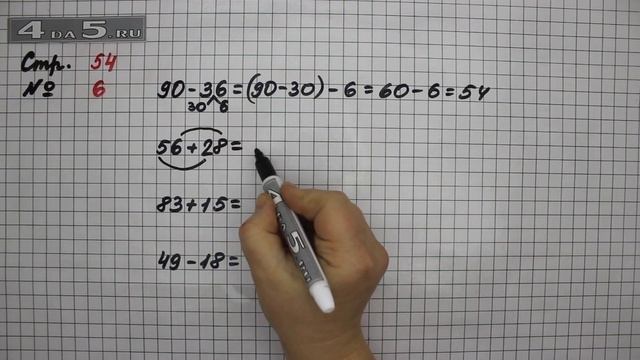 4 DA 5.RU
Стр. 54
№ 6
90-36=(90-30)-6=60-6=54
30 6
56+28=
83+15=
49-18=
4 DA 5.RU